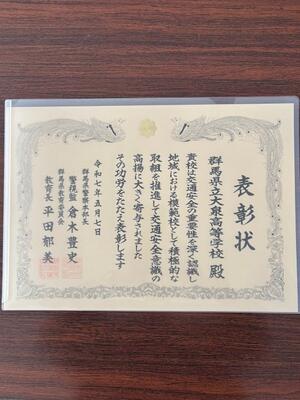 表彰状
群馬県立大泉高等学校 殿
貴校は交通安全の重要性を深く認識し
地域における模範校として積極的な
取組を推進して交通安全意識の
高揚に大きく寄与されました
その功労をたたえ表彰します
令和七年五月七日
群馬県警察本部長
警視監 倉木豊史
群馬県教育委員会
教育長 平田郁美